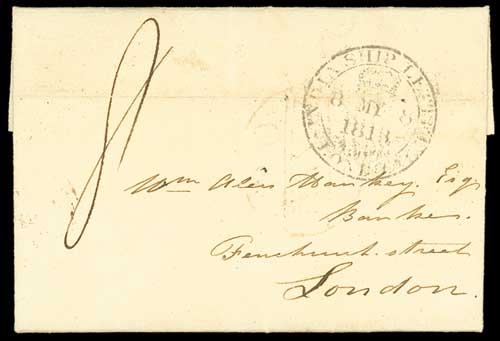 8
SHIP LETTER
8 MY 8
1818
Wm Alers Hankey. Esq
Banker.
Fenchurch street
London.